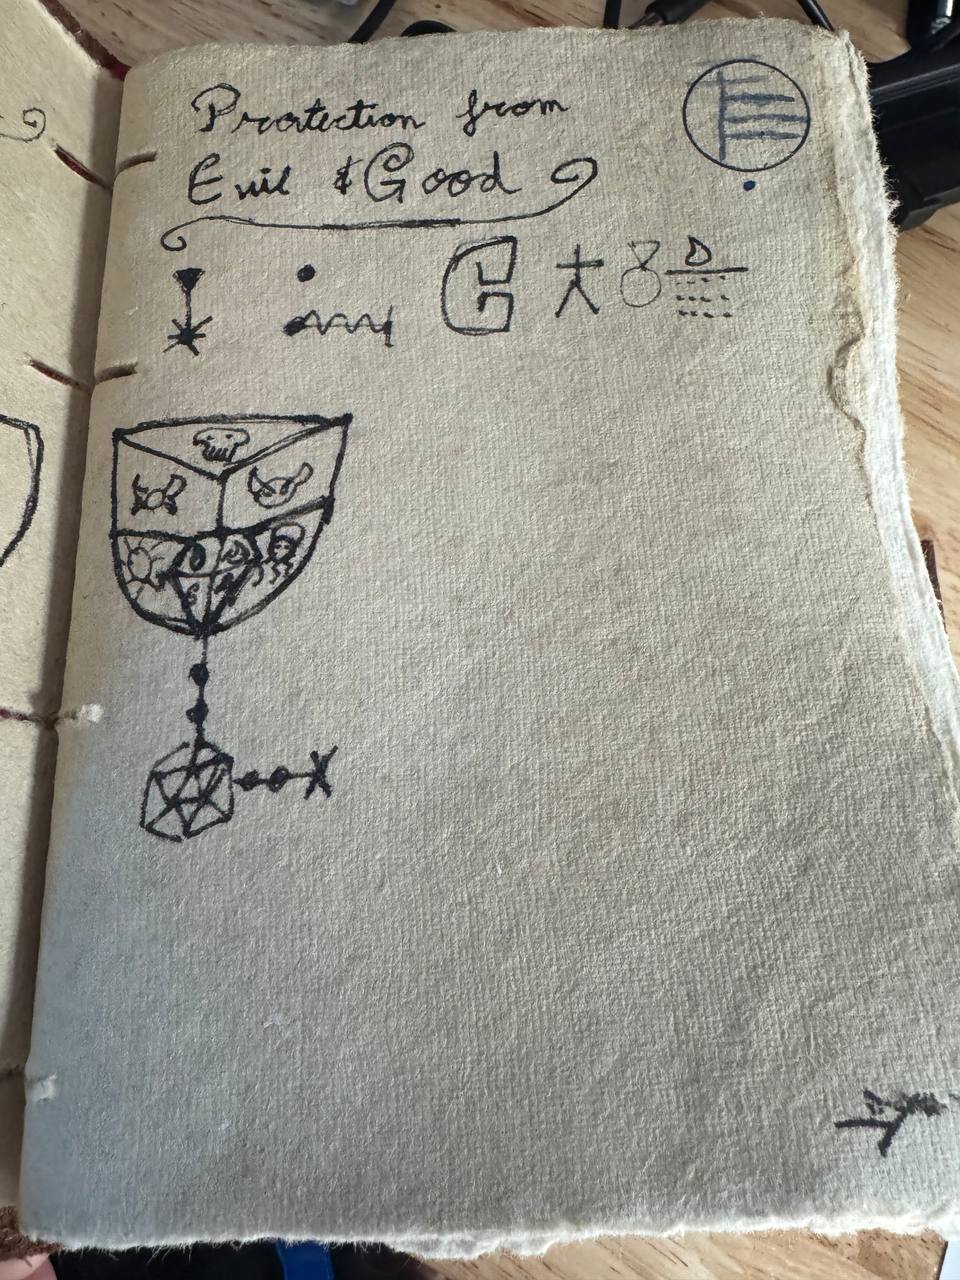 Protection from
Evil & Good
D